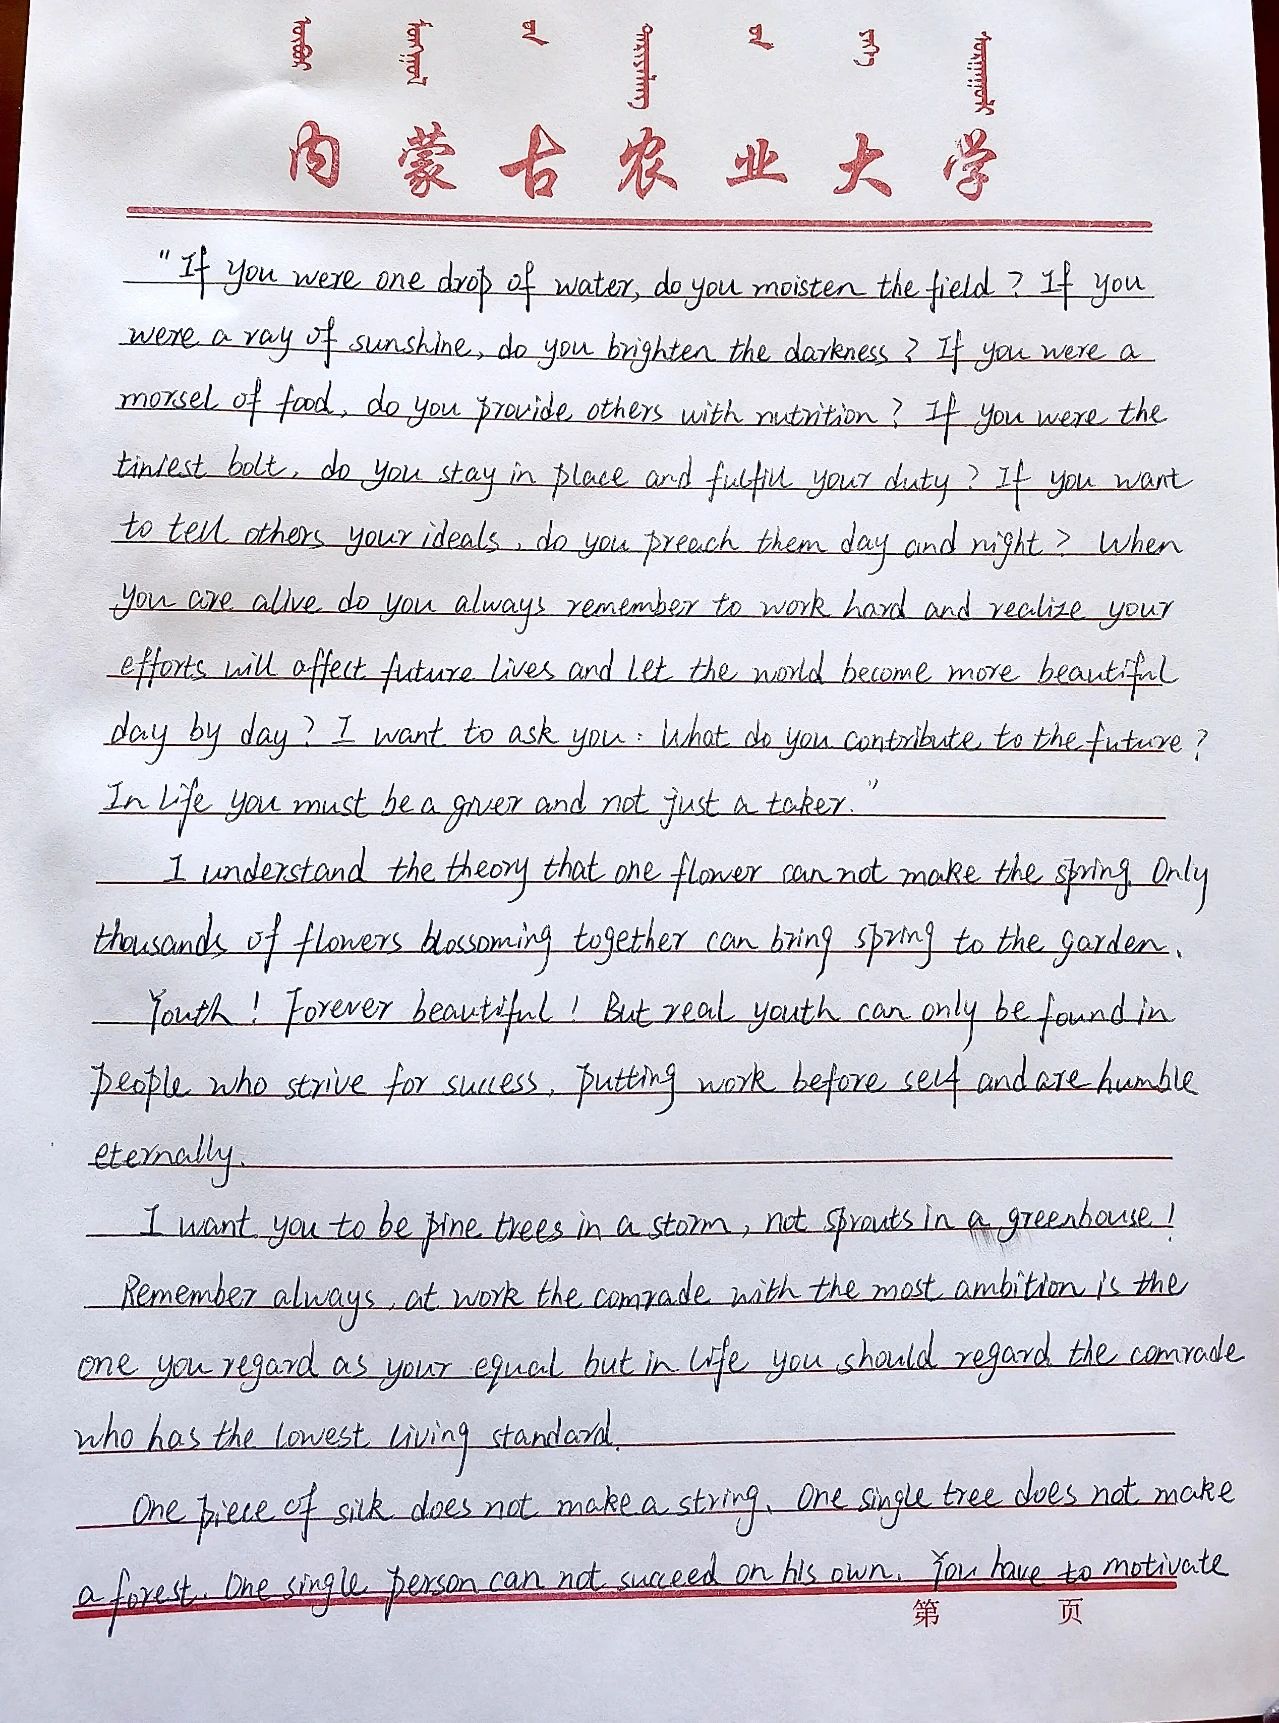 内蒙古农业大学
"If you were one drop of water, do you moisten the field? If you
were a ray of sunshine, do you brighten the darkness? If you were a
morsel of food, do you provide others with nutrition? If you were the
tiniest bolt, do you stay in place and fulfill your duty? If you want
to tell others your ideals, do you preach them day and night? When
you are alive do you always remember to work hard and realize your
efforts will affect future lives and let the world become more beautiful
day by day? I want to ask you: What do you contribute to the future?
In life you must be a giver and not just a taker."
I understand the theory that one flower can not make the spring. Only
thousands of flowers blossoming together can bring spring to the garden.
Youth! Forever beautiful! But real youth can only be found in
people who strive for success, putting work before self and are humble
eternally.
I want you to be pine trees in a storm, not sprouts in a greenhouse!
Remember always, at work the comrade with the most ambition is the
one you regard as your equal but in life you should regard the comrade
who has the lowest living standard.
One piece of silk does not make a string. One single tree does not make
a forest. One single person can not succeed on his own. You have to motivate
第 页